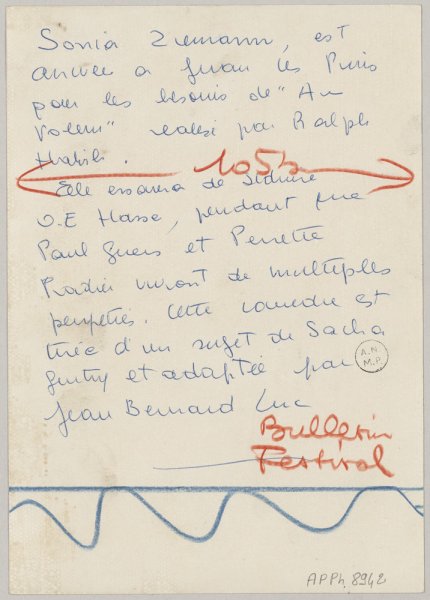 Sonia Ziemann, est
arrivée a Juan les Pins
pour les besoins de "Au
Voleur" realisé par Ralph
Habib.
105%
Elle essaiera de séduire
O.E Hasse, pendant que
Paul Guers et Perrette
Pradier vivront de multiples
peripeties. Cette comedie est
tirée d'un sujet de Sacha
Guitry et adaptée par
Jean Bernard Luc
A.N
M.P
Bulletin
Festival
APPh. 8942